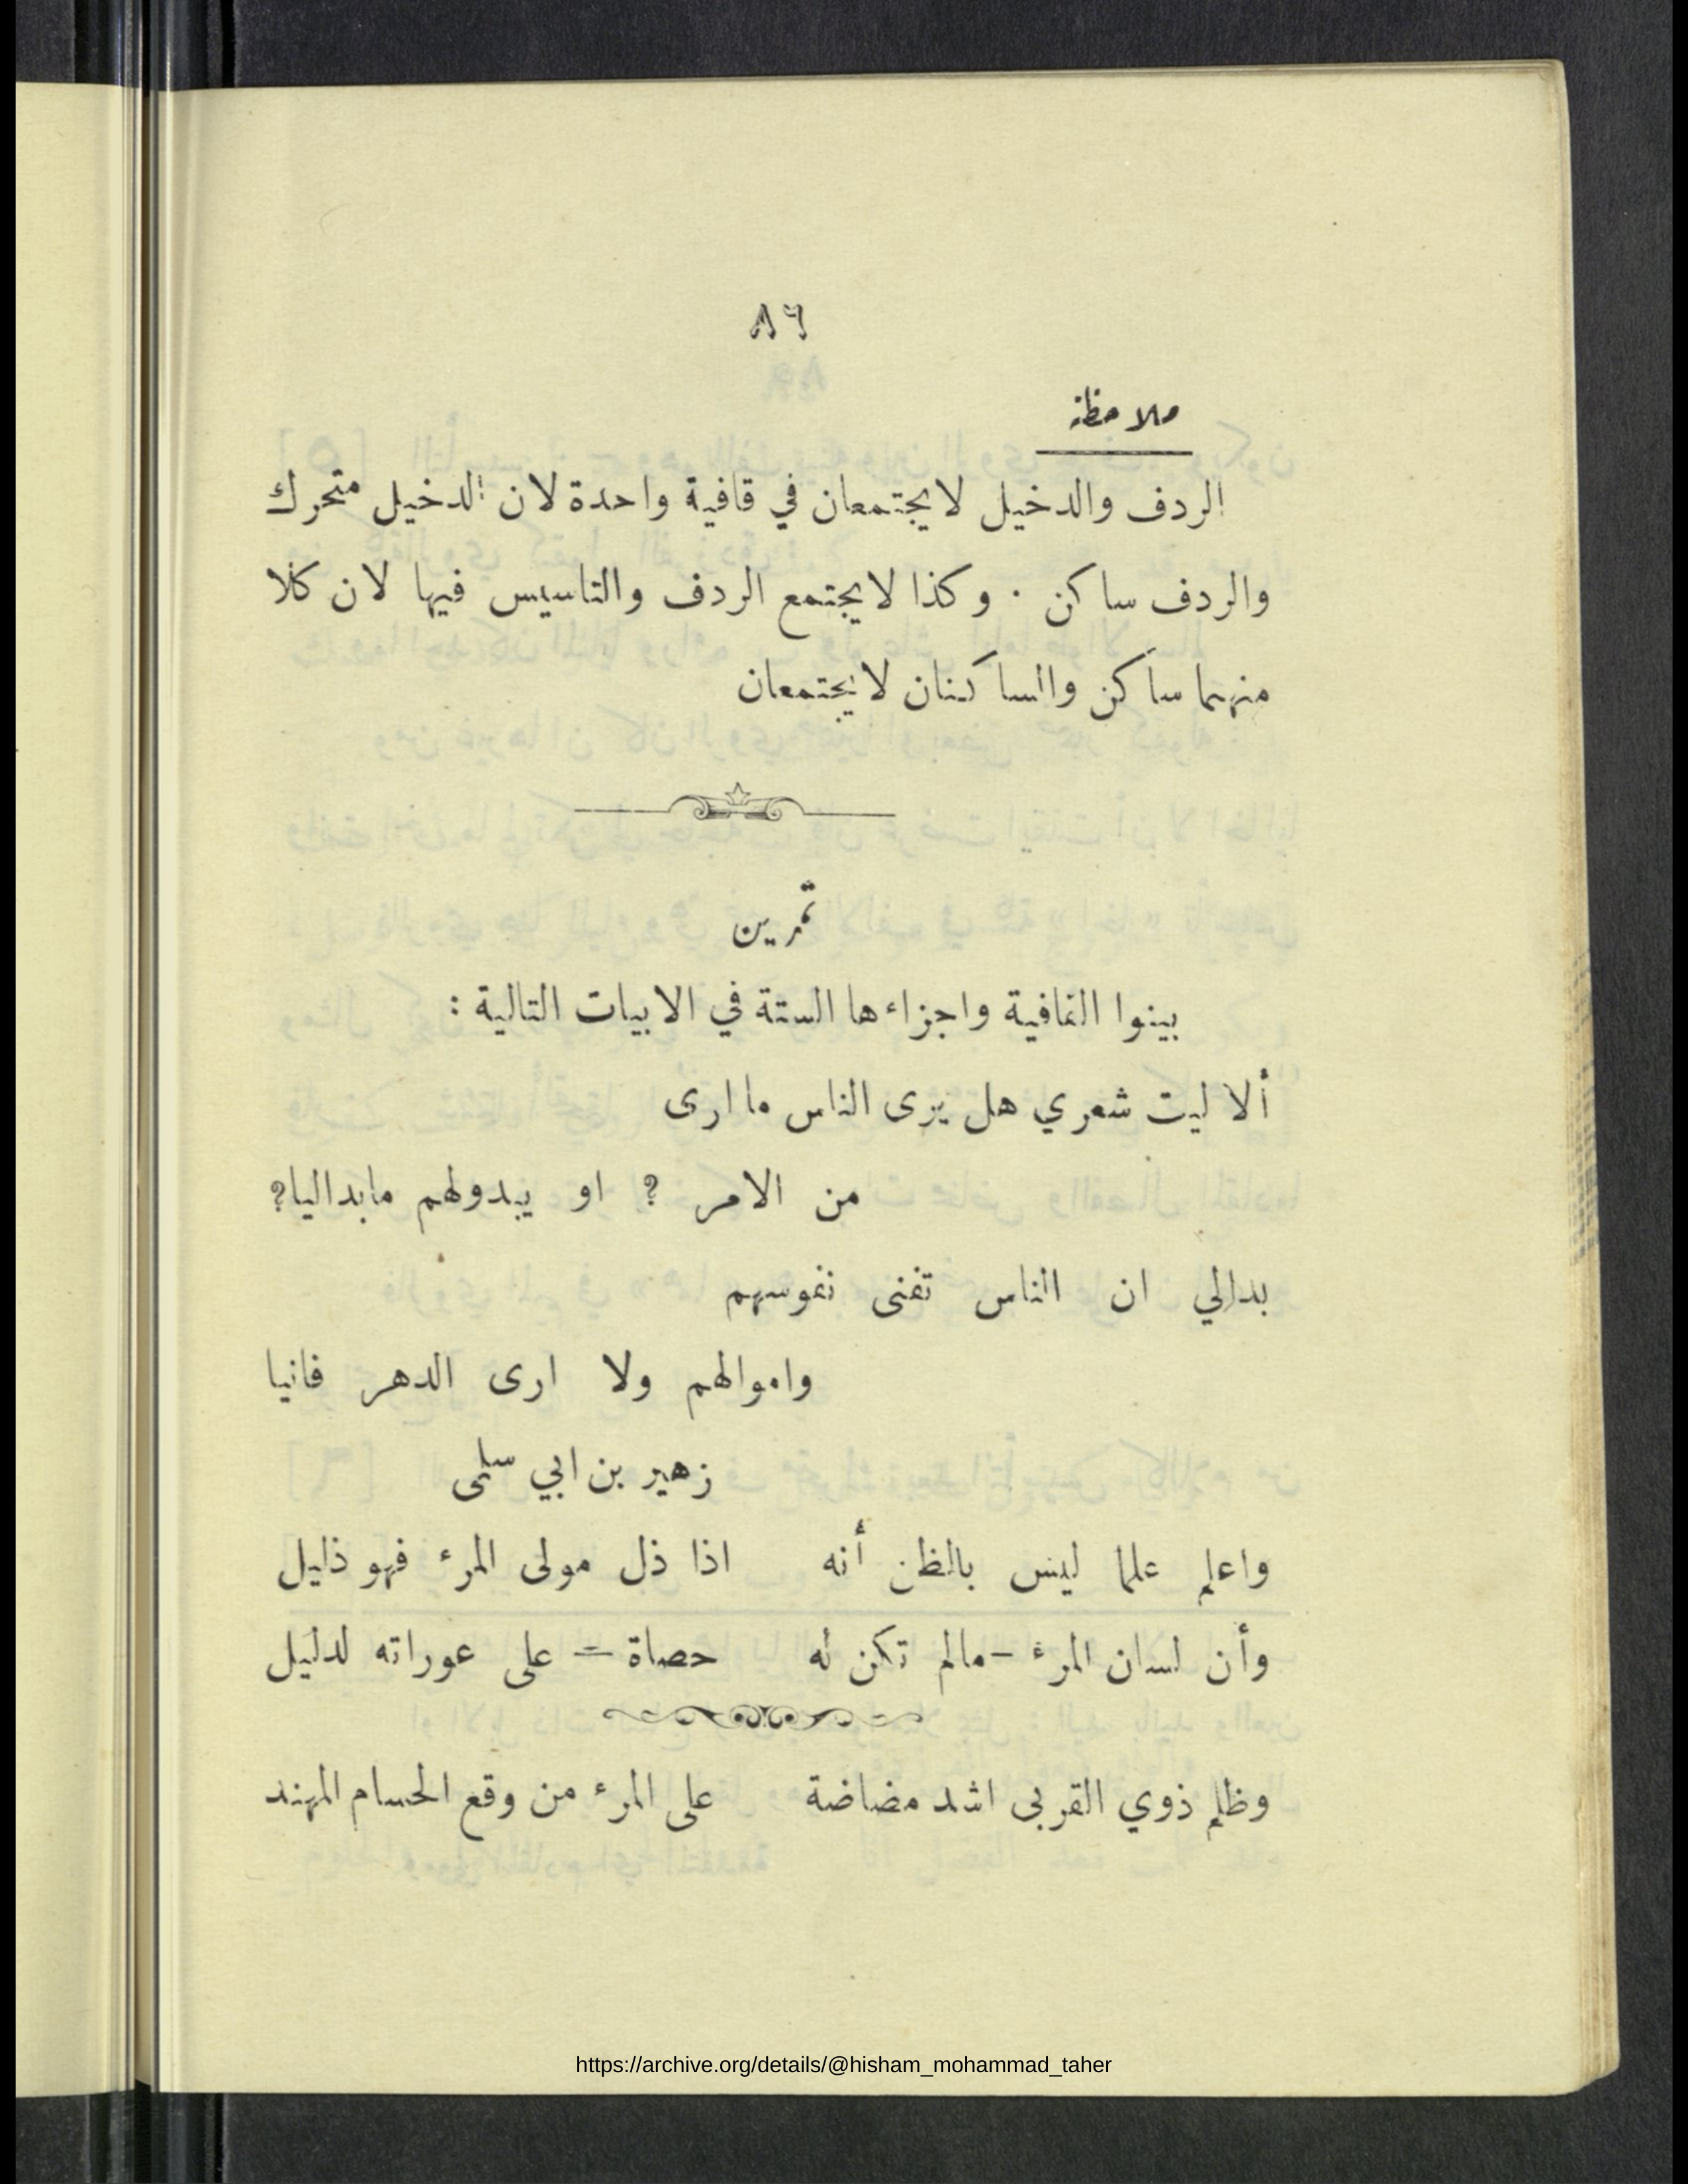 ٨٦
ملاحظة
الردف والدخيل لا يجتمعان في قافية واحدة لان الدخيل متحرك
والردف ساكن . وكذا لا يجتمع الردف والتاسيس فيها لان كلا
منهما ساكن والساكنان لا يجتمعان
تمرين
بينوا القافية واجزاءها الستة في الابيات التالية :
ألا ليت شعري هل يرى الناس ما ارى
من الامر ? او يبدولهم مابداليا?
بدالي ان الناس تفنى نفوسهم
واموالهم ولا ارى الدهر فانيا
زهير بن ابي سلمى
واعلم علما ليس بالظن أنه اذا ذل مولى المرء فهو ذليل
وأن لسان المرء – مالم تكن له حصاة = على عوراته لدليل
وظلم ذوي القربى اشد مضاضة على المرء من وقع الحسام المهند
https://archive.org/details/@hisham_mohammad_taher